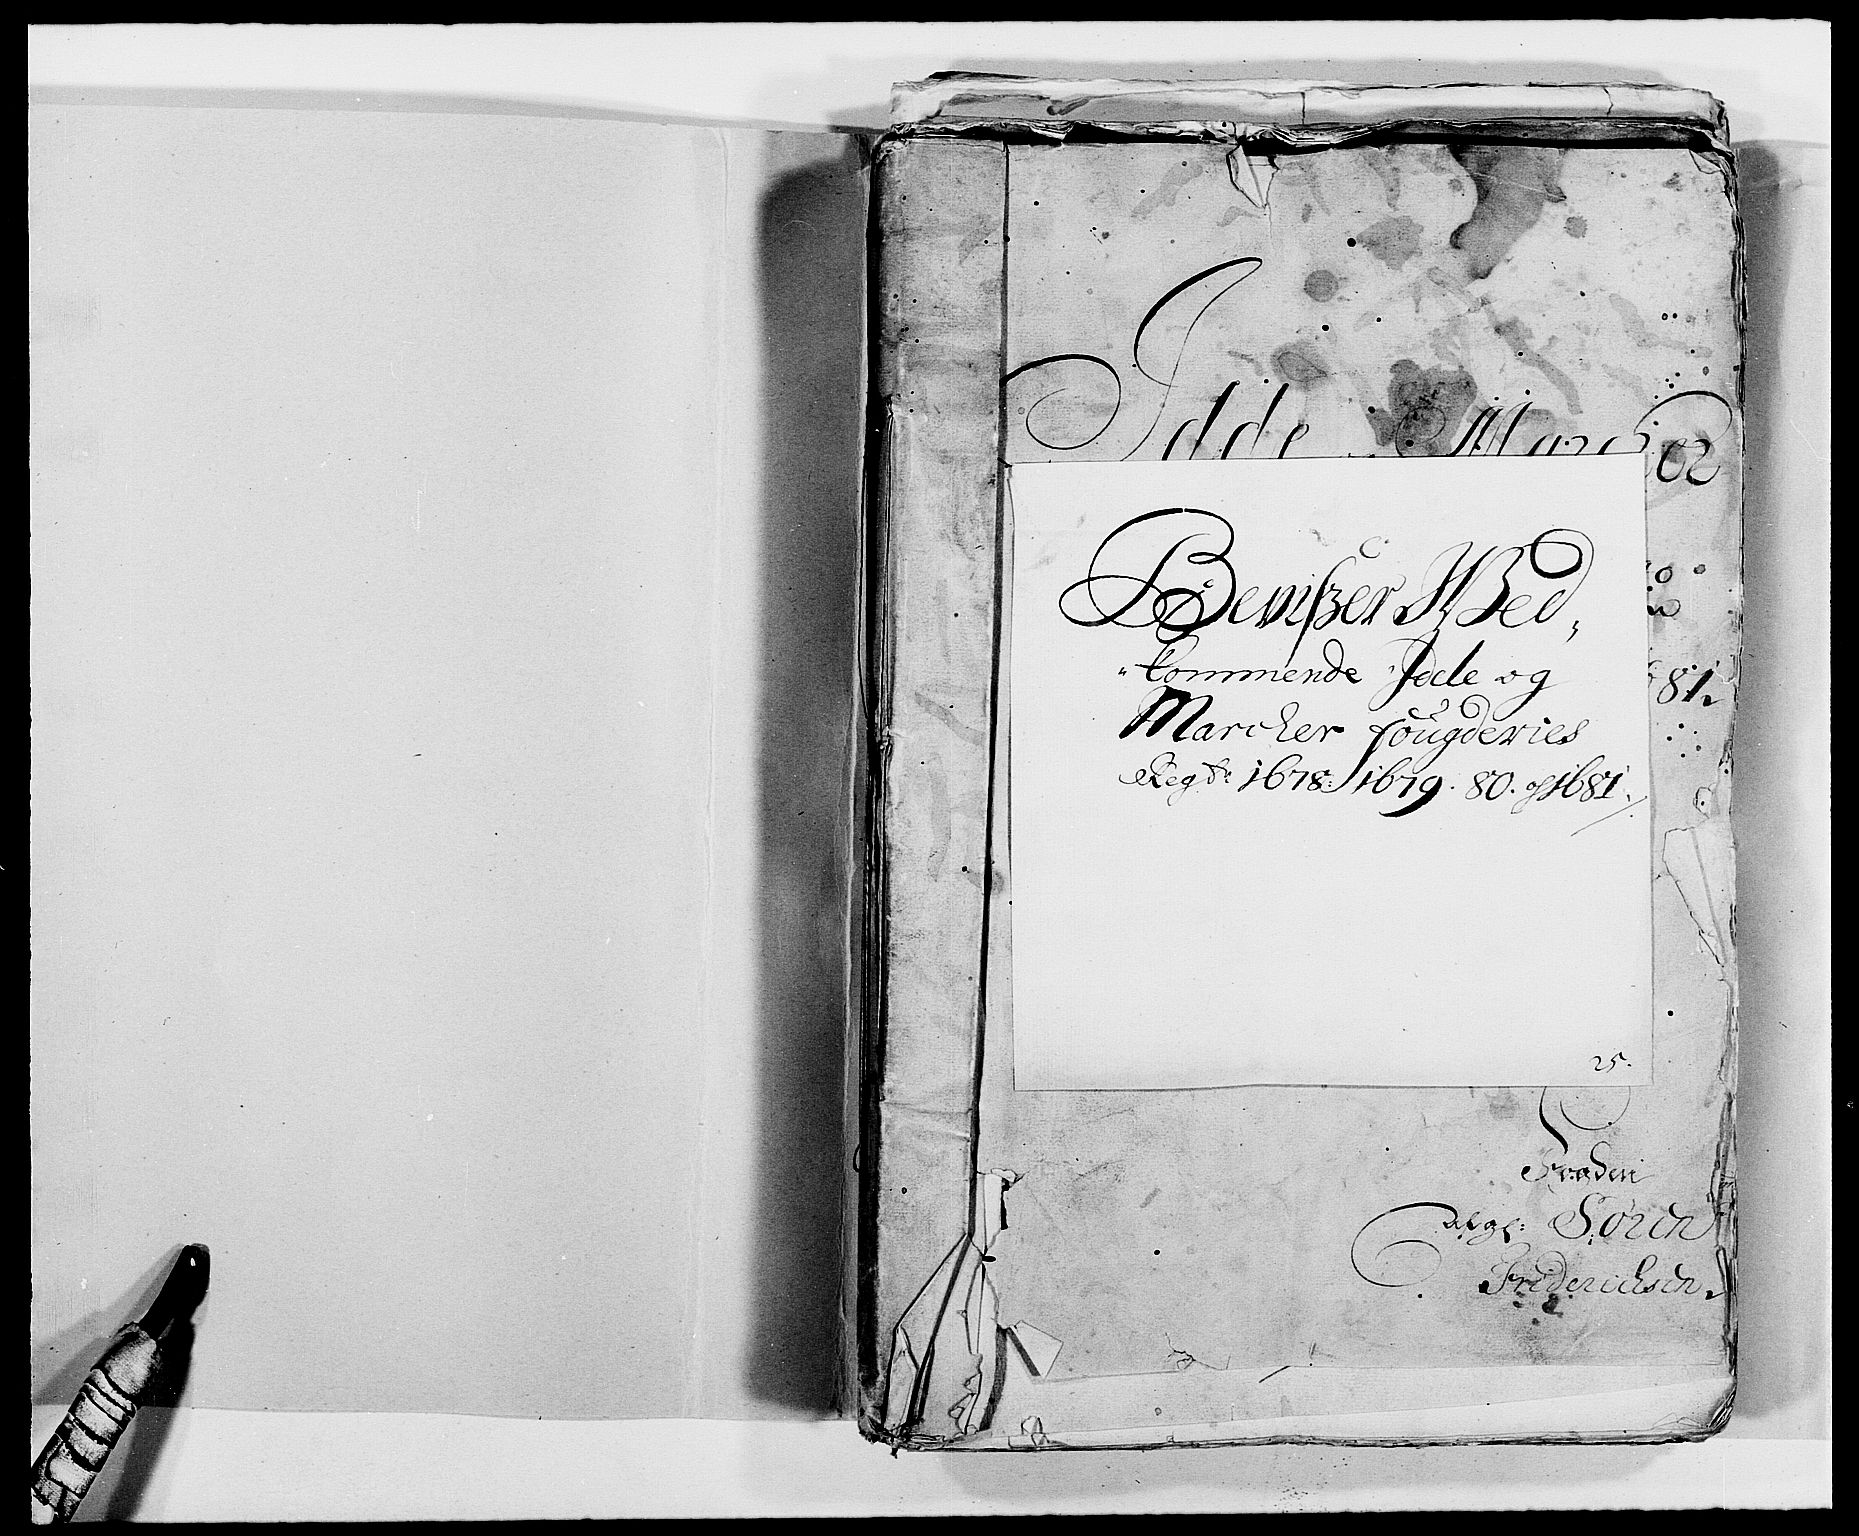 Idde Marcker
Bevißer Wed,
"kommende Idde og
Marcker fougderies
Regsk: 1678: 1679. 80. og 1681.
81.
25.
Fogden
afgl: Sören
Friderichsen.